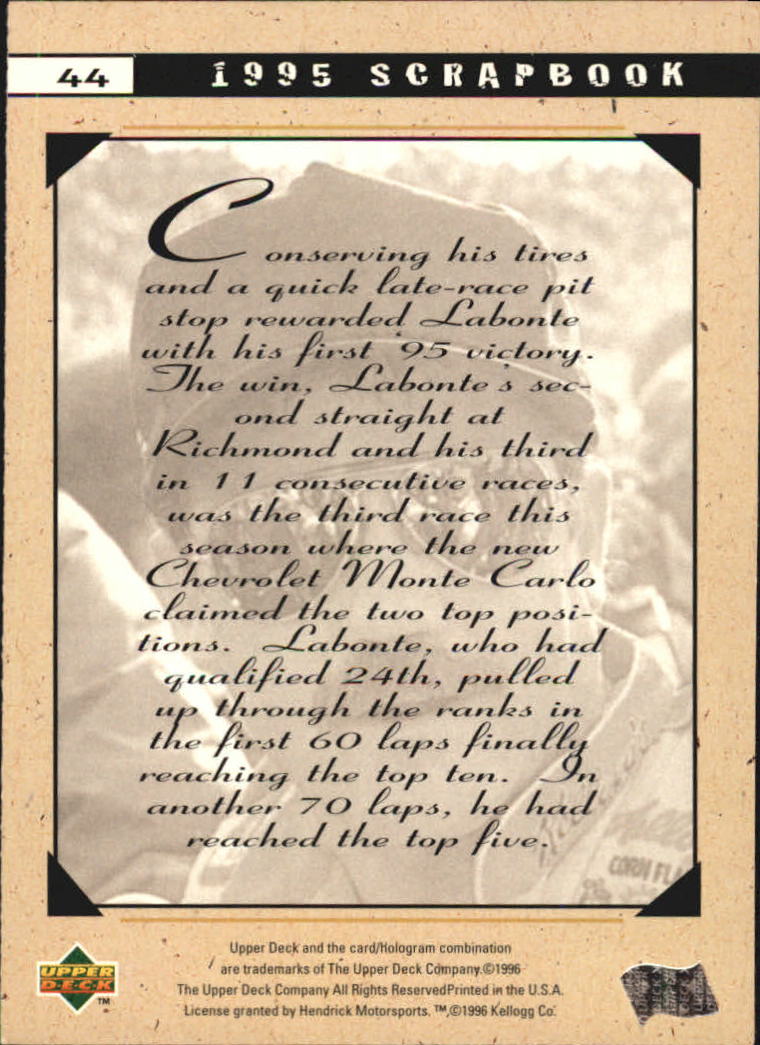 44
1995 SCRAPBOOK
Conserving his tires
and a quick late-race pit
stop rewarded Labonte
with his first '95 victory.
The win, Labonte's sec-
ond straight at
Richmond and his third
in 11 consecutive races,
was the third race this
season where the new
Chevrolet Monte Carlo
claimed the two top posi-
tions. Labonte, who had
qualified 24th, pulled
up through the ranks in
the first 60 laps finally
reaching the top ten. In
another 70 laps, he had
reached the top five.
CORN FL
Upper Deck and the card/Hologram combination
are trademarks of The Upper Deck Company.©1996
The Upper Deck Company All Rights ReservedPrinted in the U.S.A.
License granted by Hendrick Motorsports. ™,©1996 Kellogg Co.
UPPER
D·E·C·K
TM